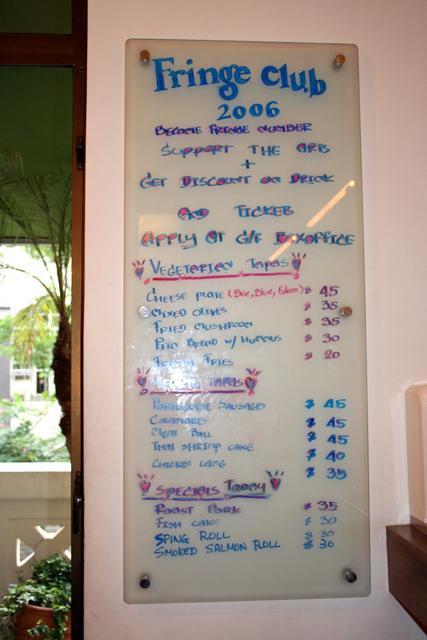 Fringe Club
2006
BECOME FRINGE MEMBER
SUPPORT THE ARTS
+
GET DISCOUNT ON DRINK
AND TICKETS
APPLY AT G/F BOXOFFICE
VEGETARIAN TAPAS
CHEESE PLATE (Brie, Blue, Edam) $ 45
MIXED OLIVES $ 35
FRIED MUSHROOM $ 35
PITA BREAD W/ HUMMUS $ 30
FRENCH FRIES $ 20
TAPAS
PORTUGUESE SAUSAGES $ 45
CALAMARES $ 45
MEAT BALL $ 45
THAI SHRIMP CAKE $ 40
CHICKEN $ 35
SPECIALS TODAY
ROAST PORK $ 35
FISH CAKE $ 30
SPING ROLL $ 30
SMOKED SALMON ROLL $ 30